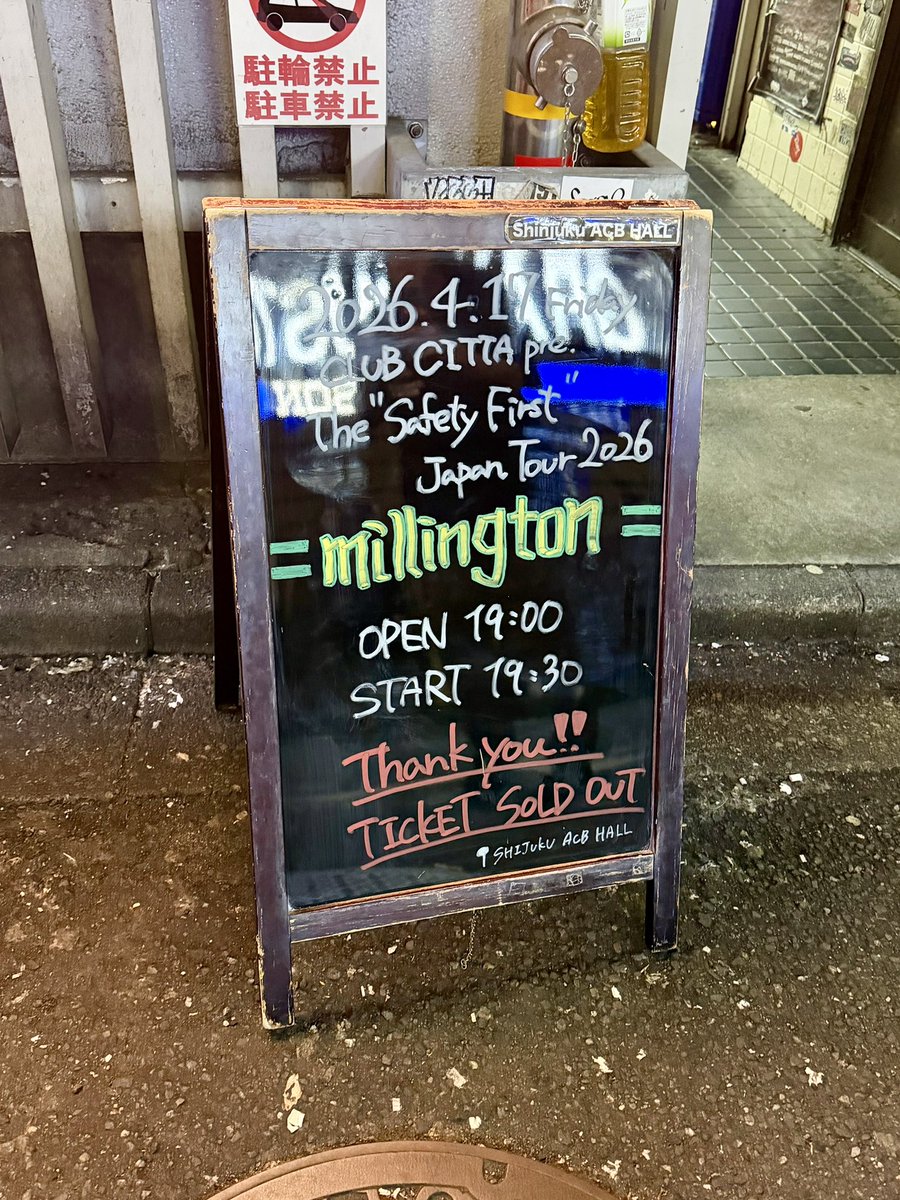 駐輪禁止
駐車禁止
Shinjuku ACB HALL
2026.4.17 Friday
CLUB CITTA pre.
The "Safety First"
Japan Tour 2026
= millington =
OPEN 19:00
START 19:30
Thank you!!
TICKET SOLD OUT
SHIJUKU ACB HALL